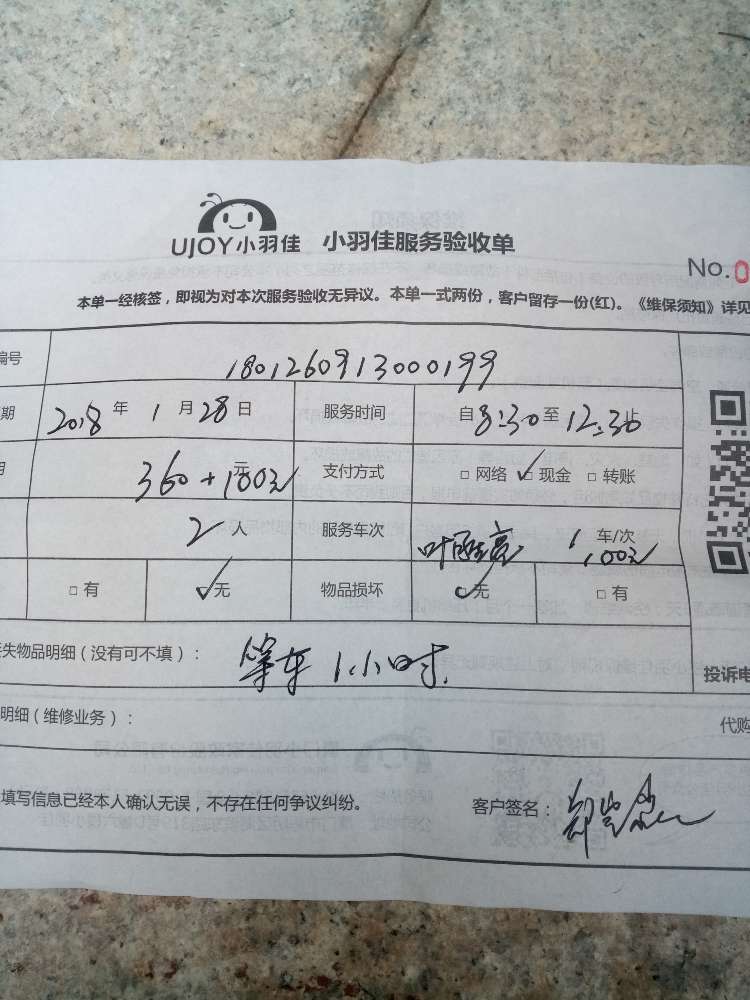 UJOY小羽佳 小羽佳服务验收单
No. 0
本单一经核签，即视为对本次服务验收无异议。本单一式两份，客户留存一份(红)。《维保须知》详见
编号 180126091300199
期 2018 年 1 月 28 日 服务时间 自 8:30 至 12:30 止
360 + 100元 支付方式 □ 网络 ✓ 现金 □ 转账
2 人 服务车次 叶 亮 1 车/次 100元
□ 有 ✓ 无 物品损坏 ✓ 无 □ 有
失物品明细（没有可不填）： 等车 1小时.
投诉电
明细（维修业务）： 代购
填写信息已经本人确认无误，不存在任何争议纠纷。 客户签名： 郑